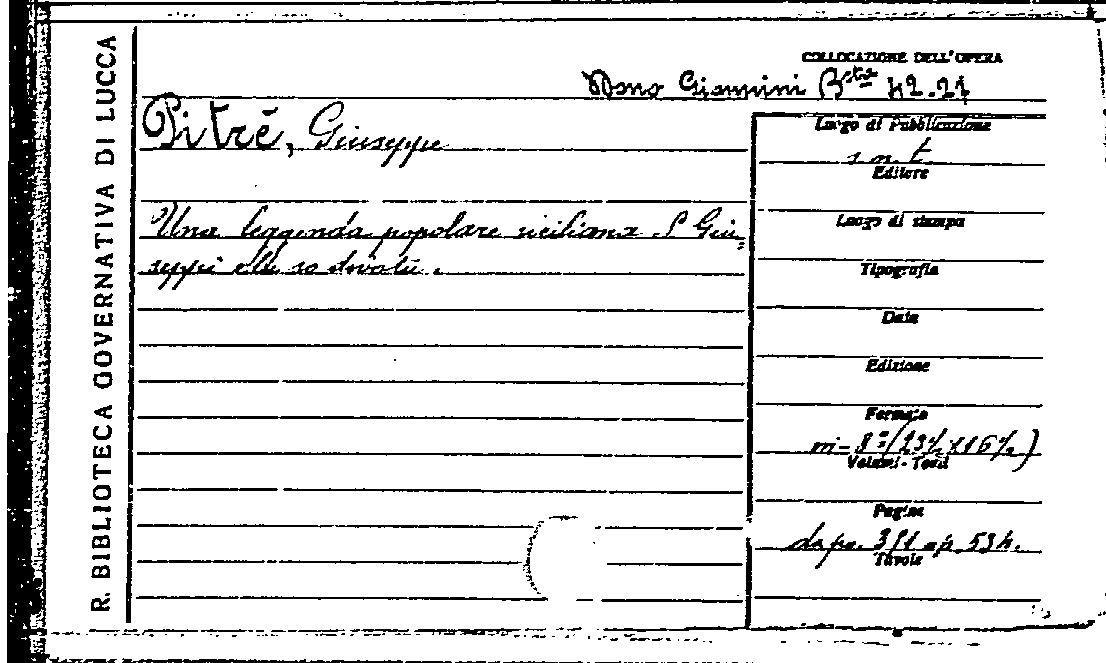 R. BIBLIOTECA GOVERNATIVA DI LUCCA
COLLOCAZIONE DELL'OPERA
Dono Giannini Bsta 42.21
Pitrè, Giuseppe
Luogo di Pubblicazione
s. n. t.
Editore
Una leggenda popolare siciliana. S. Giu=
seppi e lu so divotu.
Luogo di stampa
Tipografia
Data
Edizione
Formato
in-8º (23½ x 16½)
Volumi - Tomi
Pagine
da p. a p. 534.
Tavole